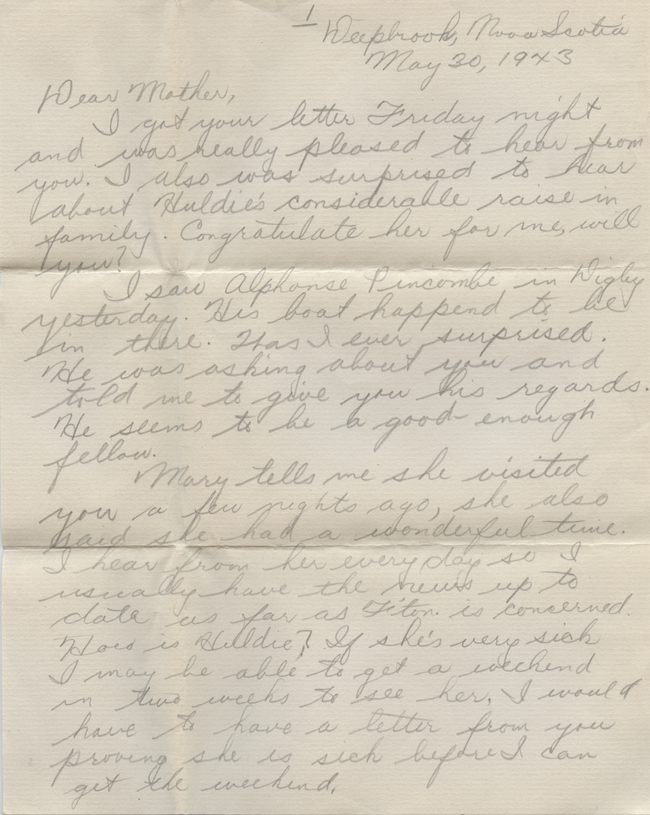 1
Deepbrook, Nova Scotia
May 30, 1943
Dear Mother,
I got your letter Friday night
and was really pleased to hear from
you. I also was surprised to hear
about Huldie's considerable raise in
family. Congratulate her for me, will
you?
I saw Alphonse Pincombe in Digby
yesterday. His boat happend to be
in there. Was I ever surprised.
He was asking about you and
told me to give you his regards.
He seems to be a good enough
fellow.
Mary tells me she visited
you a few nights ago, she also
said she had a wonderful time.
I hear from her every day so I
usually have the news up to
date as far as F'ton. is concerned.
How is Huldie? If she's very sick
I may be able to get a weekend
in two weeks to see her. I would
have to have a letter from you
proving she is sick before I can
get the weekend.